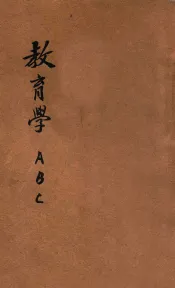 教育學ABC